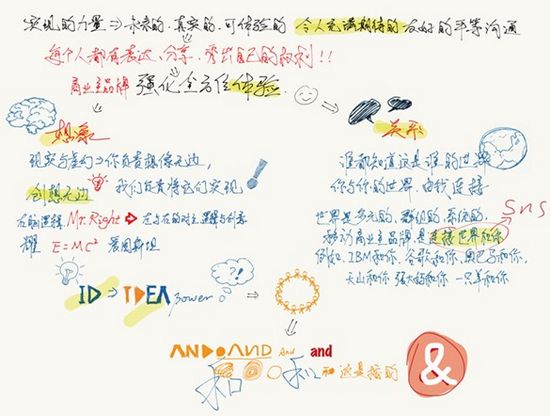 实现的力量⇒未来的、真实的、可体验的 令人充满期待的 友好的平等沟通
每个人都有表达、分享、秀出自己的权利!!
商业主品牌 强化全方位体验.
想象
关系
现实与虚幻⇒你负责想像无边,
创想无边 我们负责将它们实现!
右脑逻辑 Mr. Right 左与右的对立逻辑与创意
耀 E=MC² 爱因斯坦
谁都知道这是谁的世界
你与你的世界 由我连接
世界是多元的、群组的、系统的、
移动商业主品牌是连接世界和你
SNS
例如、IBM和你、谷歌和你、奥巴马和你、
火山和你 强大的和你 一只羊和你
ID ⇒ IDEA power
?!
AND AND And and
和 和 这是接的
&